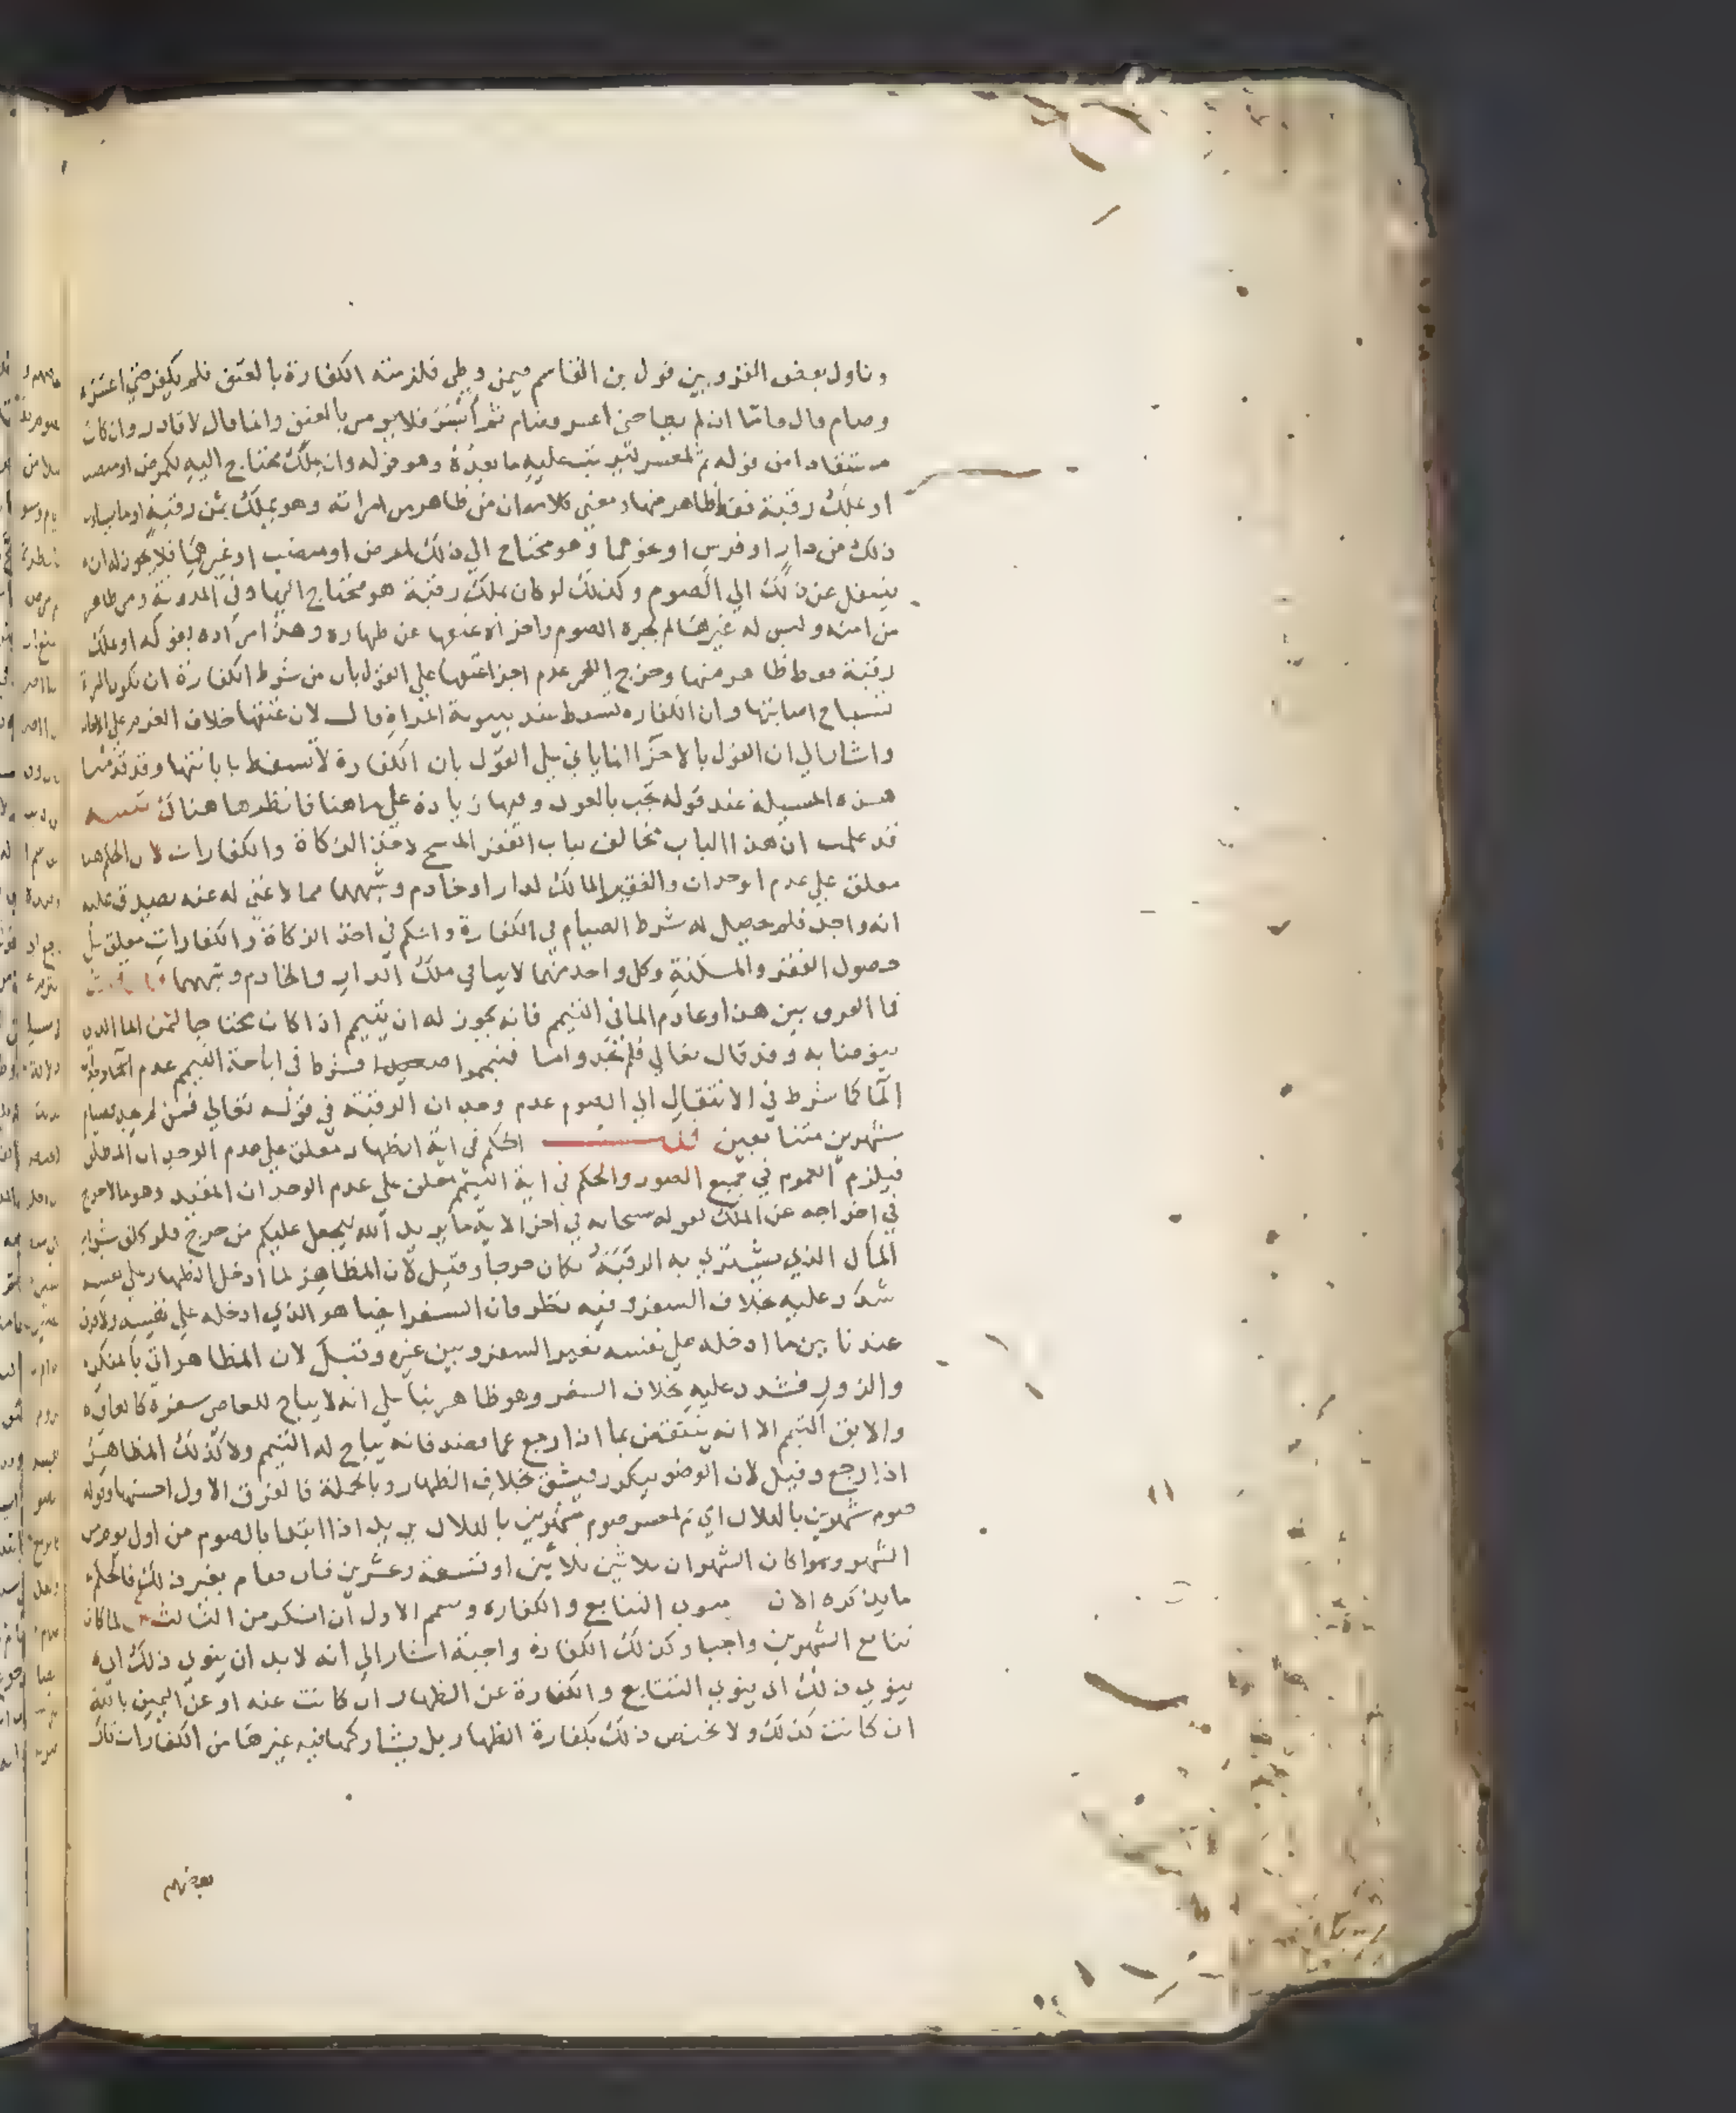 وتاول بعض القرويين قول بن القاسم فيمن وطي فلزمته الكفارة بالعتق فلم يكفر حتي اعسر
وصام قال واما ان لم يطا حتي اعسر فصام ثم أيسر فلا يومر بالعتق وانما قال لا قادر وان كان
مستفادا من قوله ثم لمعسر ليرتب عليه ما بعده وهو قوله وان بملك محتاج اليه لكمرض او منصب
او بملك رقبة فقط ظاهر منها ومعني كلامه ان من ظاهر من امراته وهو يملك ثمن رقبة او ما يساوي
ذلك من دار او فرس او نحوهما وهو محتاج الي ذلك لمرض او منصب او غيرهما فلا يجوز له ان
ينتقل عن ذلك الي الصوم وكذلك لو كان يملك رقبة هو محتاج اليها وفي المدونة ومن ظاهر
من امته وليس له غيرها لم يجزه الصوم واجزاه عتقها عن ظهاره وهذا مراده بقوله او بملك
رقبة فقط ظاهر منها وخرج اللخمي عدم اجزا عتقها علي القول بان من شرط الكفارة ان تكون المراة
تستباح اصابتها وان الكفارة تسقط عند بينونة المراة قال لان عتقها خلاف العزم علي الاصابة
واشار الي ان القول بالاجزا انما ياتي علي القول بان الكفارة لا تسقط بابانتها وقد تقدمت
هذه المسيلة عند قوله تجب بالعود وفيها زيادة علي ما هنا فانظرها هناك تنبيه
قد علمت ان هذا الباب مخالف لباب الفقر المبيح لاخذ الزكاة والكفارات لان الحكم هنا
معلق علي عدم الوجدان والفقير المالك لدار او خادم وشبههما مما لا غني له عنه يصدق عليه
انه واجد فلم يحصل له شرط الصيام في الكفارة والحكم في اخذ الزكاة والكفارات معلق علي
حصول الفقر والمسكنة وكل واحد منهما لا ينافي ملك الدار والخادم وشبههما فان قلت
فما الفرق بين هذا وعادم الما في التيمم فانه يجوز له ان يتيمم اذا كان محتاجا لثمن الما الذي
يتوضا به وقد قال تعالي فلم تجدوا ما فتيمموا صعيدا فشرط في اباحة التيمم عدم
الما كما شرط في الانتقال الي الصوم عدم وجدان الرقبة في قوله تعالي فمن لم يجد فصيام
شهرين متتابعين قلت الحكم في اية الظهار معلق علي عدم الوجدان المطلق
فيلزم العموم في جميع الصور والحكم في اية التيمم معلق علي عدم الوجدان المقيد وهو ما لا حرج
في اخراجه عن الملك لقوله سبحانه في اخر الاية ما يريد الله ليجعل عليكم من حرج فلو كلف شراء
المال الذي يشتري به الرقبة لكان حرجا وقيل لان المظاهر لما ادخل الظهار علي نفسه
شدد عليه بخلاف السفر وفيه نظر فان السفر ايضا هو الذي ادخله علي نفسه ولا فرق
عندنا بين ما ادخله علي نفسه بغير السفر وبين غيره وقيل لان المظاهر اتي بالمنكر
والزور فشدد عليه بخلاف السفر وهو ظاهر بنا علي انه لا يباح للعاصي بسفره كالعاق
والابق التيمم الا انه ينتقض بما اذا رجع عما قصد فانه يباح له التيمم ولا كذلك المظاهر
اذا رجع وقيل لان الوضو يتكرر فيشق بخلاف الظهار وبالجملة فالفرق الاول احسنها وقوله
صوم شهرين بالهلال اي ثم لمعسر صوم شهرين بالهلال يريد اذا ابتدا بالصوم من اول يوم من
الشهر وسوا كان الشهران ثلاثين ثلاثين او تسعة وعشرين فان صام بغير ذلك فالحكم
ما يذكره الان منوي التتابع والكفارة وتمم الاول ان انكسر من الثالث لما كان
تتابع الشهرين واجبا وكذلك الكفارة واجبة اشار الي انه لا بد ان ينوي ذلك اي
ينوي ذلك اي ينوي التتابع والكفارة عن الظهار ان كانت عنه او عن اليمين بالله
ان كانت كذلك ولا يختص ذلك بكفارة الظهار بل يشاركها فيه غيرها من الكفارات قال
بعضهم